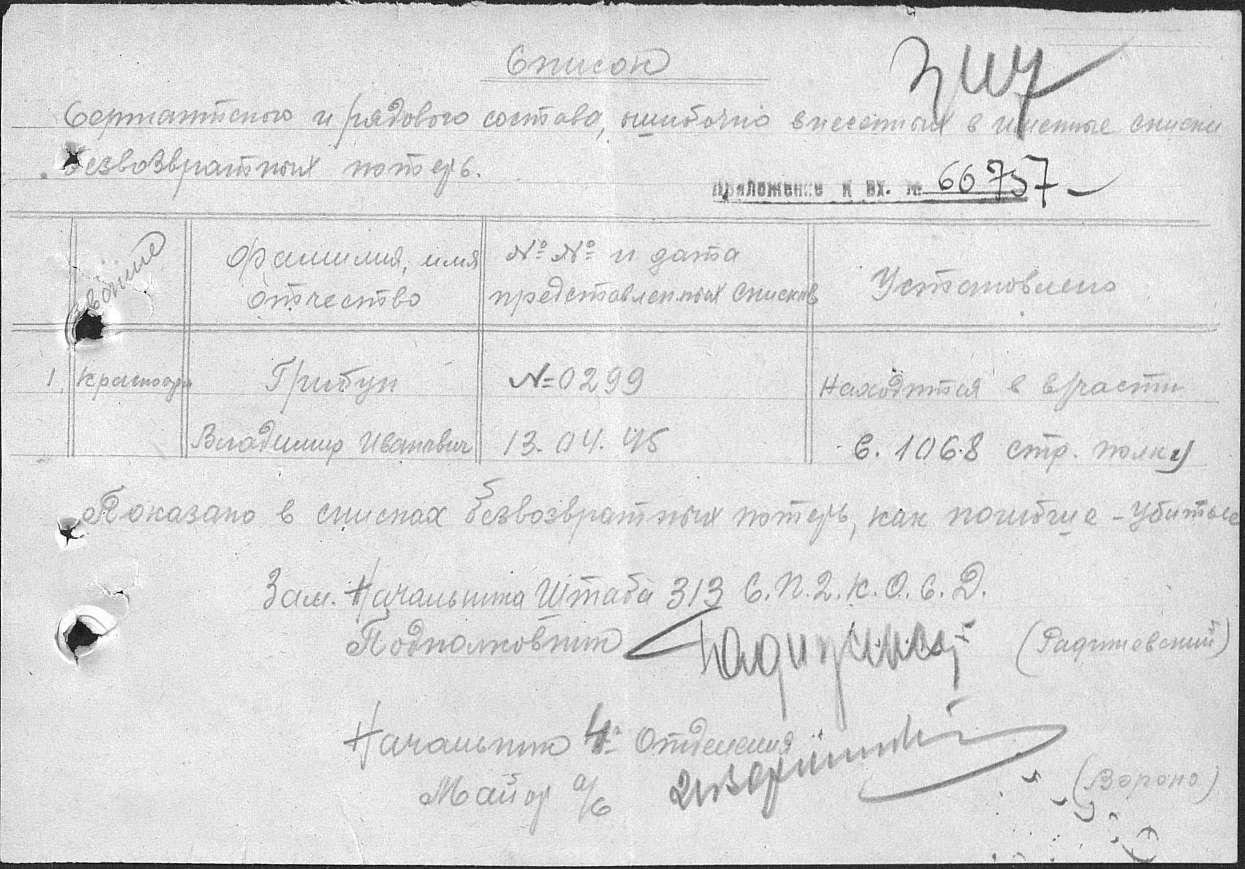 Список
Сержантского и рядового состава, ошибочно внесенных в именные списки
безвозвратных потерь.
приложение к вх. № 66757
звание
Фамилия, имя
отчество
№ № и дата
представленных списков
Установлено
1. Красноарм Грибун №0299 Находится в в/части
Владимир Иванович 13.04.45 в. 1068 стр. полку
Показано в списках безвозвратных потерь, как погибшие - убитые
Зам. Начальника Штаба 313 С.П.2.К.О.С.Д.
Подполковник
Начальник 4º Отделения
Майор а/с